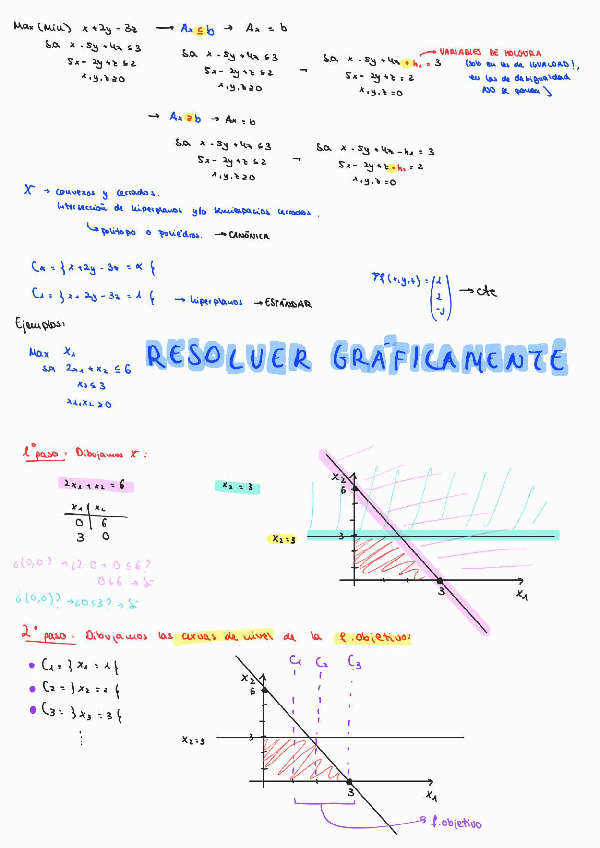 Max (Min) x + 2y - 3z → Ax ≤ b → Ax = b
s.a. x - 5y + 4z ≤ 3
5x - 2y + z ≤ 2
x, y, z ≥ 0
s.a. x - 5y + 4z ≤ 3
5x - 2y + z ≤ 2
x, y, z ≥ 0
→ s.a. x - 5y + 4z + h₁ = 3
5x - 2y + z = 2
x, y, z = 0
→ VARIABLES DE HOLGURA
(solo en las de IGUALDAD!,
en las de desigualdad
NO se ponen)
→ Ax ≥ b → Ax = b
s.a. x - 5y + 4z ≤ 3
5x - 2y + z ≤ 2
x, y, z ≥ 0
→ s.a. x - 5y + 4z - h₁ = 3
5x - 2y + z - h₂ = 2
x, y, z = 0
X → convexos y cerrados.
Intersección de hiperplanos y/o semiespacios cerrados.
↳ politopo o poliedros. → CANÓNICA
Cα = { x + 2y - 3z = α {
C₁ = { x + 2y - 3z = 1 { → hiperplanos → ESTÁNDAR
∇f (x, y, z) = (1 2 -3) → cte
Ejemplos:
RESOLVER GRÁFICAMENTE
Max x₁
s.a. 2x₁ + x₂ ≤ 6
x₂ ≤ 3
x₁, x₂ ≥ 0
1º paso: Dibujamos X:
2x₁ + x₂ = 6
x₂ = 3
x₁ | x₂
0 | 6
3 | 0
¿(0,0)? → ¿2·0 + 0 ≤ 6?
0 ≤ 6 → Sí
¿(0,0)? → ¿0 ≤ 3? → Sí
x₂
6
3
x₂ = 3
3
x₁
2º paso: Dibujamos las curvas de nivel de la f. objetivo:
• C₁ = } x₁ = 1 {
• C₂ = } x₂ = 2 {
• C₃ = } x₃ = 3 {
⋮
C₁ C₂ C₃
x₂
6
3
x₂ = 3
3
x₁
→ f. objetivo